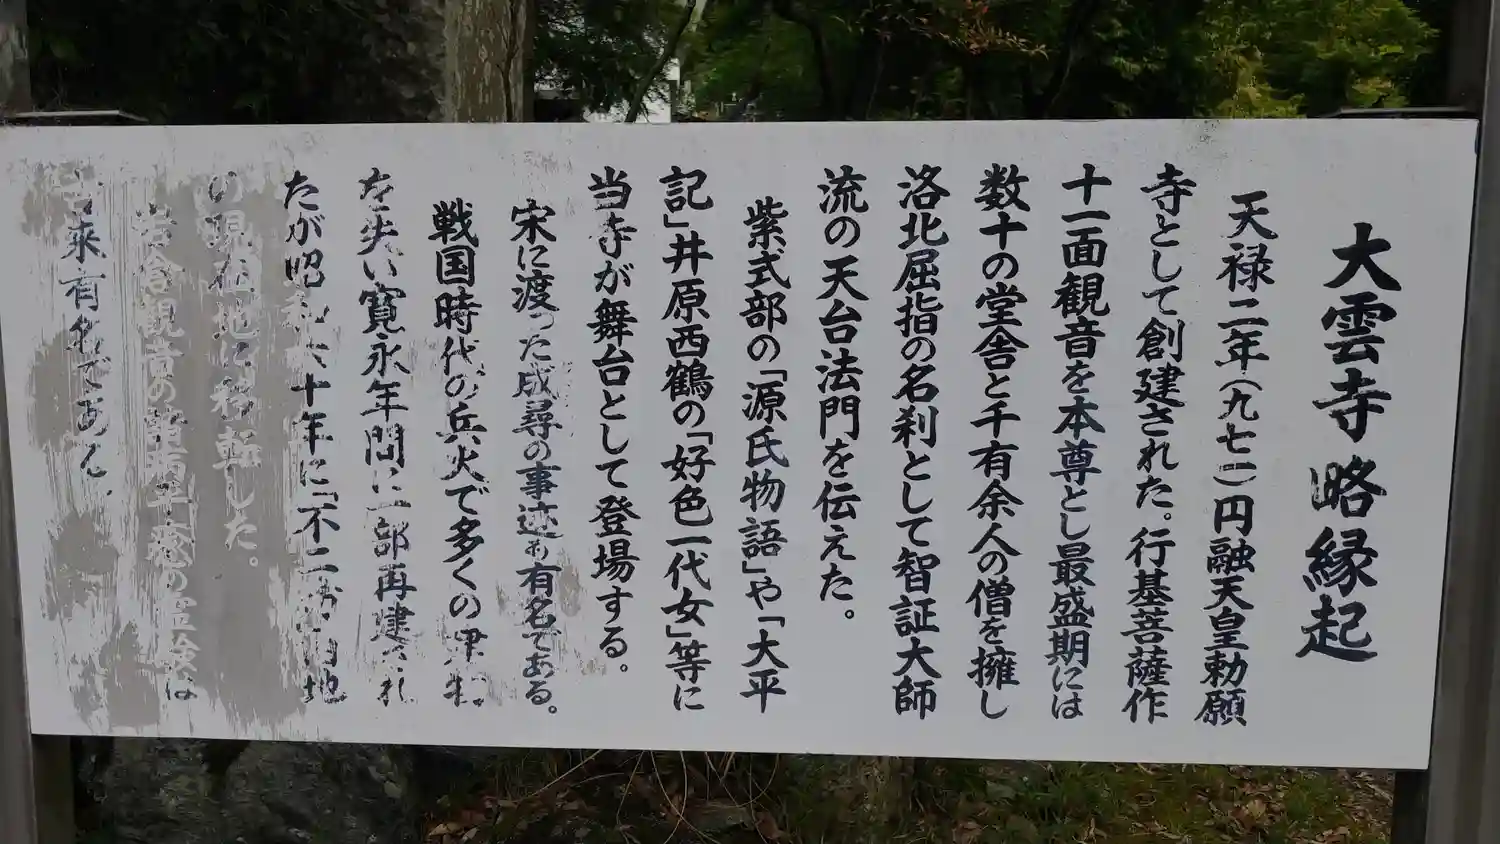 大雲寺 略縁起
天禄二年(九七一)円融天皇勅願
寺として創建された。行基菩薩作
十一面観音を本尊とし最盛期には
数十の堂舎と千有余人の僧を擁し
洛北屈指の名刹として智証大師
流の天台法門を伝えた。
紫式部の「源氏物語」や「大平
記」井原西鶴の「好色一代女」等に
当寺が舞台として登場する。
宋に渡った成尋の事迹も有名である。
戦国時代の兵火で多くの
を失い寛永年間に一部再建され
たが昭和六十年に「不二 内地
の現在地に移転した。
岩倉観音の 霊験は
来有名である